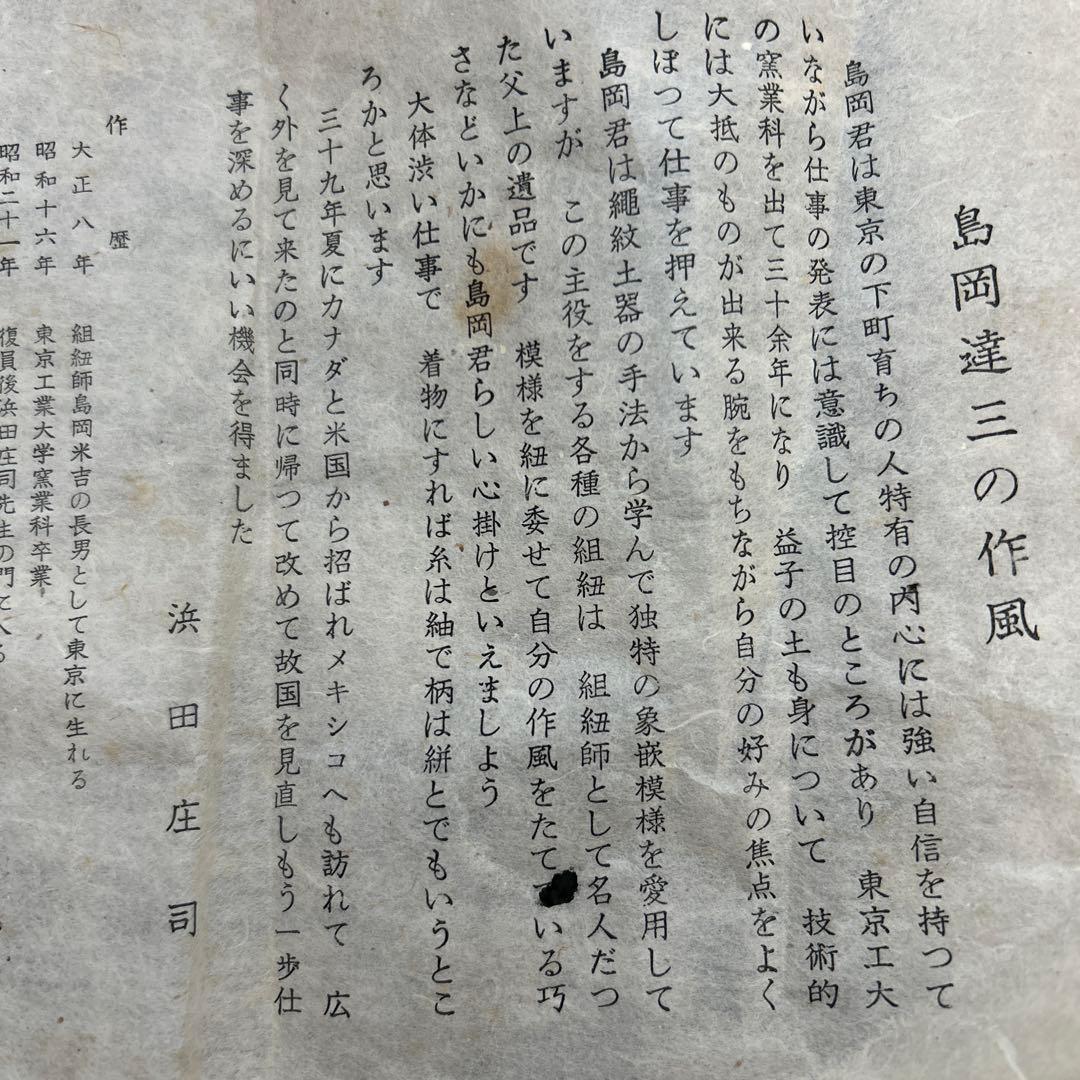 島岡達三の作風
島岡君は東京の下町育ちの人特有の内心には強い自信を持つて
いながら仕事の発表には意識して控目のところがあり　東京工大
の窯業科を出て三十余年になり　益子の土も身について　技術的
には大抵のものが出来る腕をもちながら自分の好みの焦点をよく
しぼつて仕事を押えています
島岡君は縄紋土器の手法から学んで独特の象嵌模様を愛用して
いますが　この主役をする各種の組紐は　組紐師として名人だつ
た父上の遺品です　模様を紐に委せて自分の作風をたて いる巧
さなどいかにも島岡君らしい心掛けといえましよう
大体渋い仕事で　着物にすれば糸は紬で柄は絣とでもいうとこ
ろかと思います
三十九年夏にカナダと米国から招ばれメキシコへも訪れて　広
く外を見て来たのと同時に帰つて改めて故国を見直しもう一歩仕
事を深めるにいい機会を得ました
浜田庄司
作歴
大正八年　組紐師島岡米吉の長男として東京に生れる
昭和十六年　東京工業大学窯業科卒業
昭和二十一年　復員後浜田庄司先生の門に入る